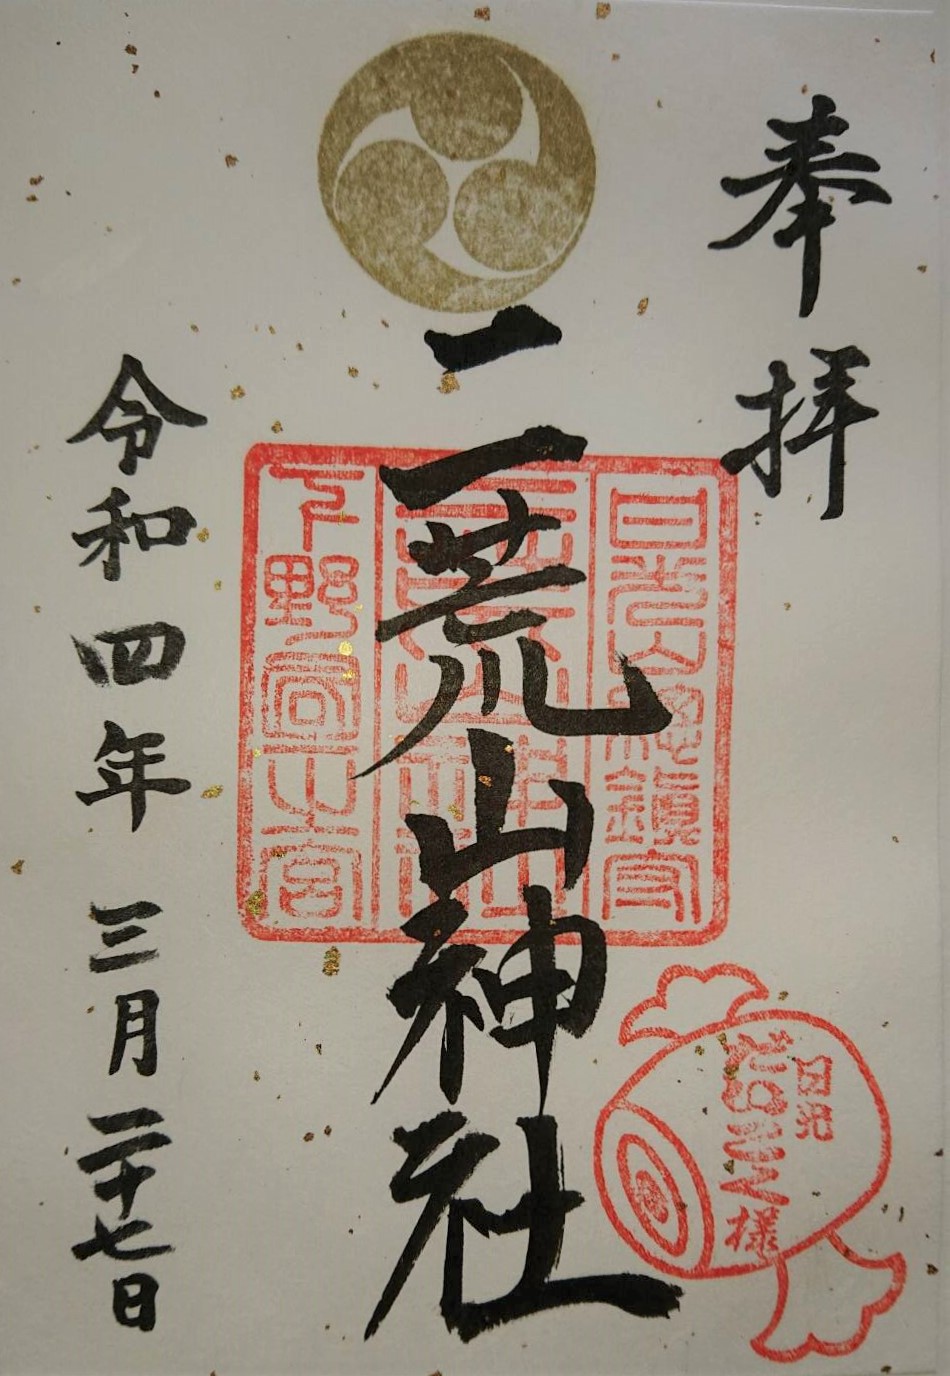 奉拝
日光山総鎮守
二荒山神社
二荒山神社
下野国一之宮
日光
だいこく様
令和四年三月二十七日